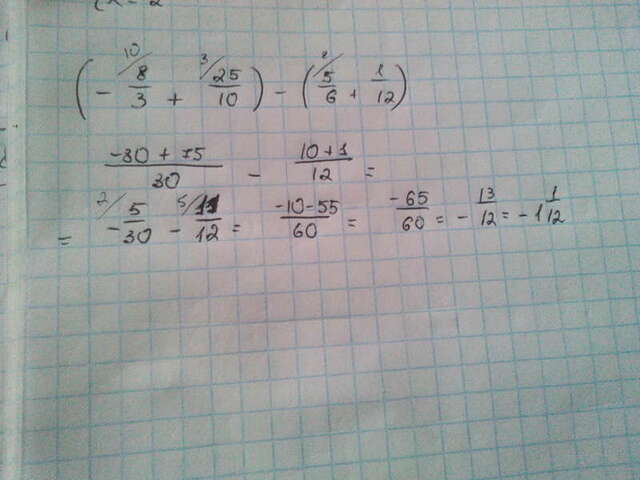 (-10/8/3 + 3/25/10) - (2/5/6 + 1/12)
-30 + 75/30 - 10 + 1/12 =
= 2/-5/30 - 5/11/12 = -10-55/60 = -65/60 = -13/12 = -1 1/12